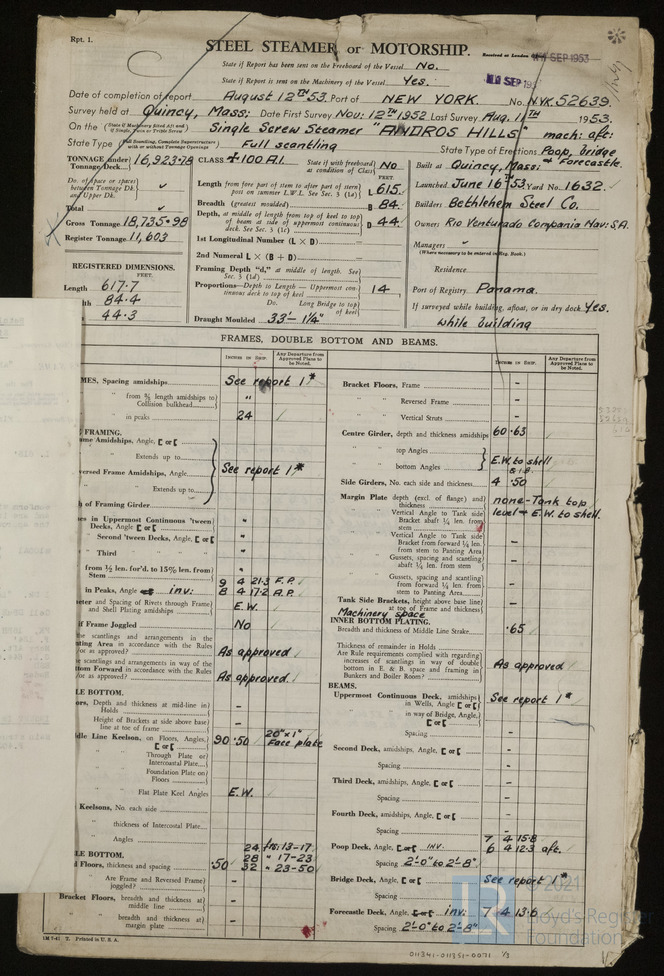 Rpt. 1.
STEEL STEAMER or MOTORSHIP.
Received at London
SEP 1953
State if Report has been sent on the Freeboard of the Vessel No.
State if Report is sent on the Machinery of the Vessel Yes.
Date of completion of report August 12TH 53. Port of NEW YORK. No. N.YK. 52639.
Survey held at Quincy, Mass: Date First Survey Nov: 12TH 1952 Last Survey Aug. 11TH 1953.
On the (State if Machinery fitted Aft and if Single, Twin or Triple Screw) Single Screw Steamer "ANDROS HILLS" mach: aft:
State Type (Full Scantling, Complete Superstructure with or without Tonnage Openings) Full scantling State Type of Erections Poop, bridge & Forecastle.
TONNAGE under Tonnage Deck 16,923.78
Do. of space or spaces between Tonnage Dk. and Upper Dk.
Total
Gross Tonnage 18,735.98
Register Tonnage 11,603
REGISTERED DIMENSIONS.
FEET.
Length 617.7
84.4
44.3
CLASS +100 A.I. State if with freeboard as condition of Class No
FEET.
Length from fore part of stem to after part of stern post on summer L.W.L. See Sec. 3 (1a) L 615
Breadth (greatest moulded) B 84
Depth, at middle of length from top of keel to top of beam at side of uppermost continuous deck. See Sec. 3 (1c) D 44
1st Longitudinal Number (L × D)
2nd Numeral L × (B + D)
Framing Depth "d," at middle of length. See Sec. 3 (1d)
Proportions—Depth to Length—Uppermost continuous deck to top of keel 14
Do. Long Bridge to top of keel
Draught Moulded 33'- 1¼"
Built at Quincy, Mass:
Launched June 16TH 53 Yard No. 1632.
Builders Bethlehem Steel Co.
Owners Rio Venturado Compania Nav: S.A.
Managers
(Where necessary to be entered in Reg. Book.)
Residence
Port of Registry Panama.
If surveyed while building, afloat, or in dry dock. Yes.
while building
FRAMES, DOUBLE BOTTOM AND BEAMS.
INCHES IN SHIP. Any Departure from Approved Plans to be Noted.
MES, Spacing amidships See report 1*
" " from ⅗ length amidships to Collision bulkhead "
" " in peaks 24
FRAMING.
me Amidships, Angle, [ or [
" Extends up to
versed Frame Amidships, Angle See report 1*
" " Extends up to
h of Framing Girder
es in Uppermost Continuous 'tween Decks, Angle, [ or [ "
" Second 'tween Decks, Angle, [ or [ "
" Third " " "
" from ½ len. for'd. to 15% len. from Stem "
in Peaks, Angle inv: 9 4 21.3 F.P.
8 4 17.2 A.P.
eter and Spacing of Rivets through Frame and Shell Plating amidships E.W.
if Frame Joggled No
he scantlings and arrangements in the ting Area in accordance with the Rules or as approved? As approved
e scantlings and arrangements in way of the ttom Forward in accordance with the Rules or as approved? As approved.
LE BOTTOM.
ors, Depth and thickness at mid-line in Holds -
Height of Brackets at side above base line at toe of frame -
dle Line Keelson, on Floors, Angles, [ or [ 90 .50 20" x 1" Face plate
" " Through Plate or Intercostal Plate
" " Foundation Plate on Floors
" " Flat Plate Keel Angles E.W.
Keelsons, No. each side
" thickness of Intercostal Plate
" Angles
24 frs: 13-17
LE BOTTOM. 28 " 17-23
d Floors, thickness and spacing .50 32 " 23-50
" Are Frame and Reversed Frame joggled? -
Bracket Floors, breadth and thickness at middle line -
" breadth and thickness at margin plate -
1M 7-47 T. Printed in U. S. A.
INCHES IN SHIP. Any Departure from Approved Plans to be Noted.
Bracket Floors, Frame -
" " Reversed Frame -
" " Vertical Struts -
Centre Girder, depth and thickness amidships 60 .63
" " top Angles
" " bottom Angles E.W. to shell & I.B.
Side Girders, No. each side and thickness 4 .50
Margin Plate depth (excl. of flange) and thickness none-Tank top
" Vertical Angle to Tank side Bracket abaft ¼ len. from stem level & E.W. to shell.
" Vertical Angle to Tank side Bracket from forward ¼ len. from stem to Panting Area -
" Gussets, spacing and scantling abaft ¼ len. from stem -
" Gussets, spacing and scantling from forward ¼ len. from stem to Panting Area -
Tank Side Brackets, height above base line at toe of Frame and thickness -
Machinery space
INNER BOTTOM PLATING.
Breadth and thickness of Middle Line Strake .65
Thickness of remainder in Holds
Are Rule requirements complied with regarding increases of scantlings in way of double bottom in E. & B. space and framing in Bunkers and Boiler Room? As approved
BEAMS.
Uppermost Continuous Deck, amidships in Wells, Angle [ or [ See report 1*
" " in way of Bridge, Angle, [ or [ -
Spacing -
Second Deck, amidships, Angle, [ or [ -
Spacing -
Third Deck, amidships, Angle, [ or [ -
Spacing -
Fourth Deck, amidships, Angle, [ or [ -
Spacing -
7 4 15.8
Poop Deck, Angle, [ or [ inv. 6 4 12.3 aft.
Spacing 2'-0" to 2'-8"
Bridge Deck, Angle, [ or [ See report 1*
Spacing -
Forecastle Deck, Angle, [ or [ inv: 7 4 13.6
Spacing 2'-0" to 2'-8"
© 2021
LR
Lloyd's Register
Foundation
011341-011351-0071 1/3